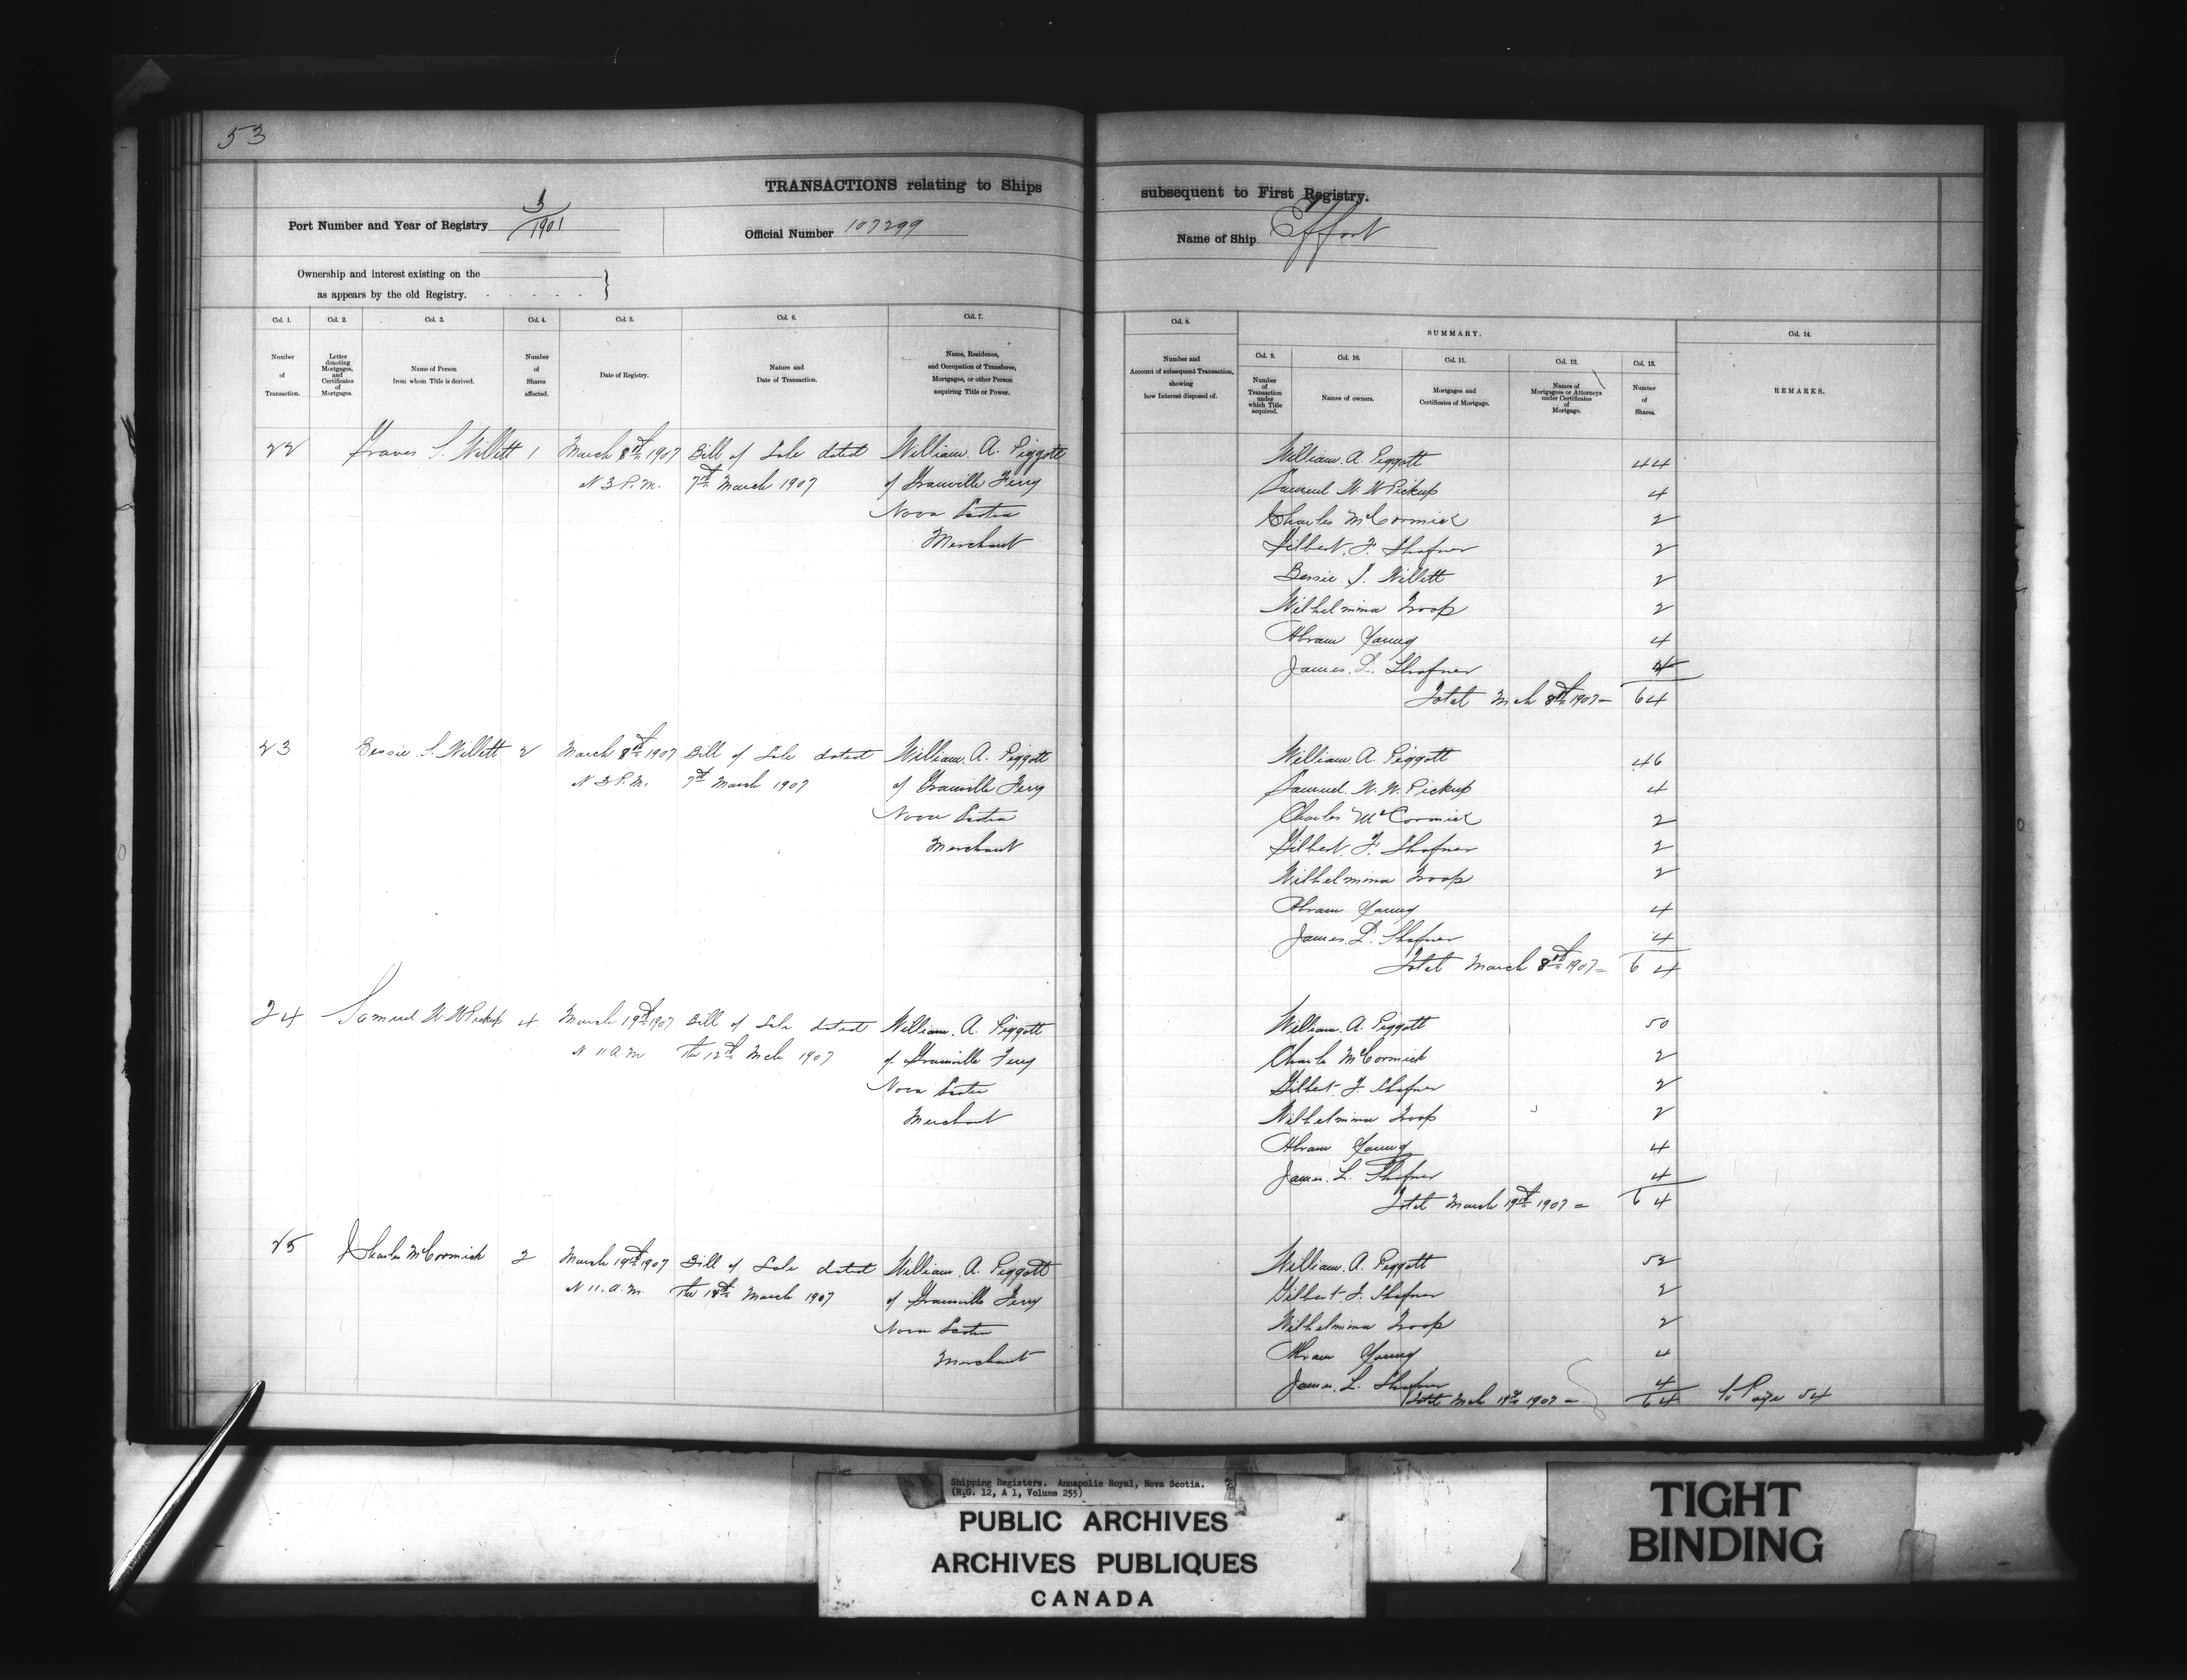 53
TRANSACTIONS relating to Ships
subsequent to First Registry.
Port Number and Year of Registry 3/1901
Official Number 107299
Name of Ship Effort
Ownership and interest existing on the
as appears by the old Registry.
Col. 1.
Number
of
Transaction.
Col. 2.
Letter
denoting
Mortgages,
and
Certificates
of
Mortgages.
Col. 3.
Name of Person
from whom Title is derived.
Col. 4.
Number
of
Shares
affected.
Col. 5.
Date of Registry.
Col. 6.
Nature and
Date of Transaction.
Col. 7.
Name, Residence,
and Occupation of Transferee,
Mortgagee, or other Person
acquiring Title or Power.
Col. 8.
Number and
Account of subsequent Transaction,
showing
how Interest disposed of.
SUMMARY.
Col. 9.
Number
of
Transaction
under
which Title
acquired.
Col. 10.
Names of owners.
Col. 11.
Mortgages and
Certificates of Mortgage.
Col. 12.
Names of
Mortgagees or Attorneys
under Certificates
of
Mortgage.
Col. 13.
Number
of
Shares.
Col. 14.
REMARKS.
22 S. Willett 1 March 8th 1907 Bill of Sale dated William. A. Piggott
3 P.M. 7th March 1907 of Granville Ferry
Nova Scotia
Merchant
William. A. Piggott 44
Samuel W. W Pickup 4
Charles McCormick 2
Gilbert. F. Shafner 2
Bessie S. Willett 2
Wilhelmina Troop 2
Abram Young 4
James. L. Shafner 4
Total Mch 8th 1907 = 64
23 Bessie S. Willett 2 March 8th 1907 Bill of Sale dated William. A. Piggott
3 P.M. 7th March 1907 of Granville Ferry
Nova Scotia
Merchant
William. A. Piggott 46
Samuel. W. W. Pickup 4
Charles McCormick 2
Gilbert. F. Shafner 2
Wilhelmina Troop 2
Abram Young 4
James. L. Shafner 4
Total March 8th 1907 = 64
24 Samuel W W Pickup 4 March 19th 1907 Bill of Sale dated William. A. Piggott
11 A M the 12th Mch 1907 of Granville Ferry
Nova Scotia
Merchant
William. A. Piggott 50
Charls McCormick 2
Gilbert. F. Shafner 2
Wilhelmina Troop 2
Abram Young 4
James. L. Shafner 4
Total March 19th 1907 = 64
25 Charles McCormick 2 March 19th 1907 Bill of Sale dated William. A. Piggott
11. A. M. the March 1907 of Granville Ferry
Nova Scotia
Merchant
William. A. Piggott 52
Gilbert F. Shafner 2
Wilhelmina Troop 2
Abram Young 4
James. L. Shafner 4
Total Mch 19th 1907 = 64 To Page 54
Shipping Registers. Annapolis Royal, Nova Scotia.
(R.G. 12, A 1, Volume 255)
PUBLIC ARCHIVES
ARCHIVES PUBLIQUES
CANADA
TIGHT
BINDING